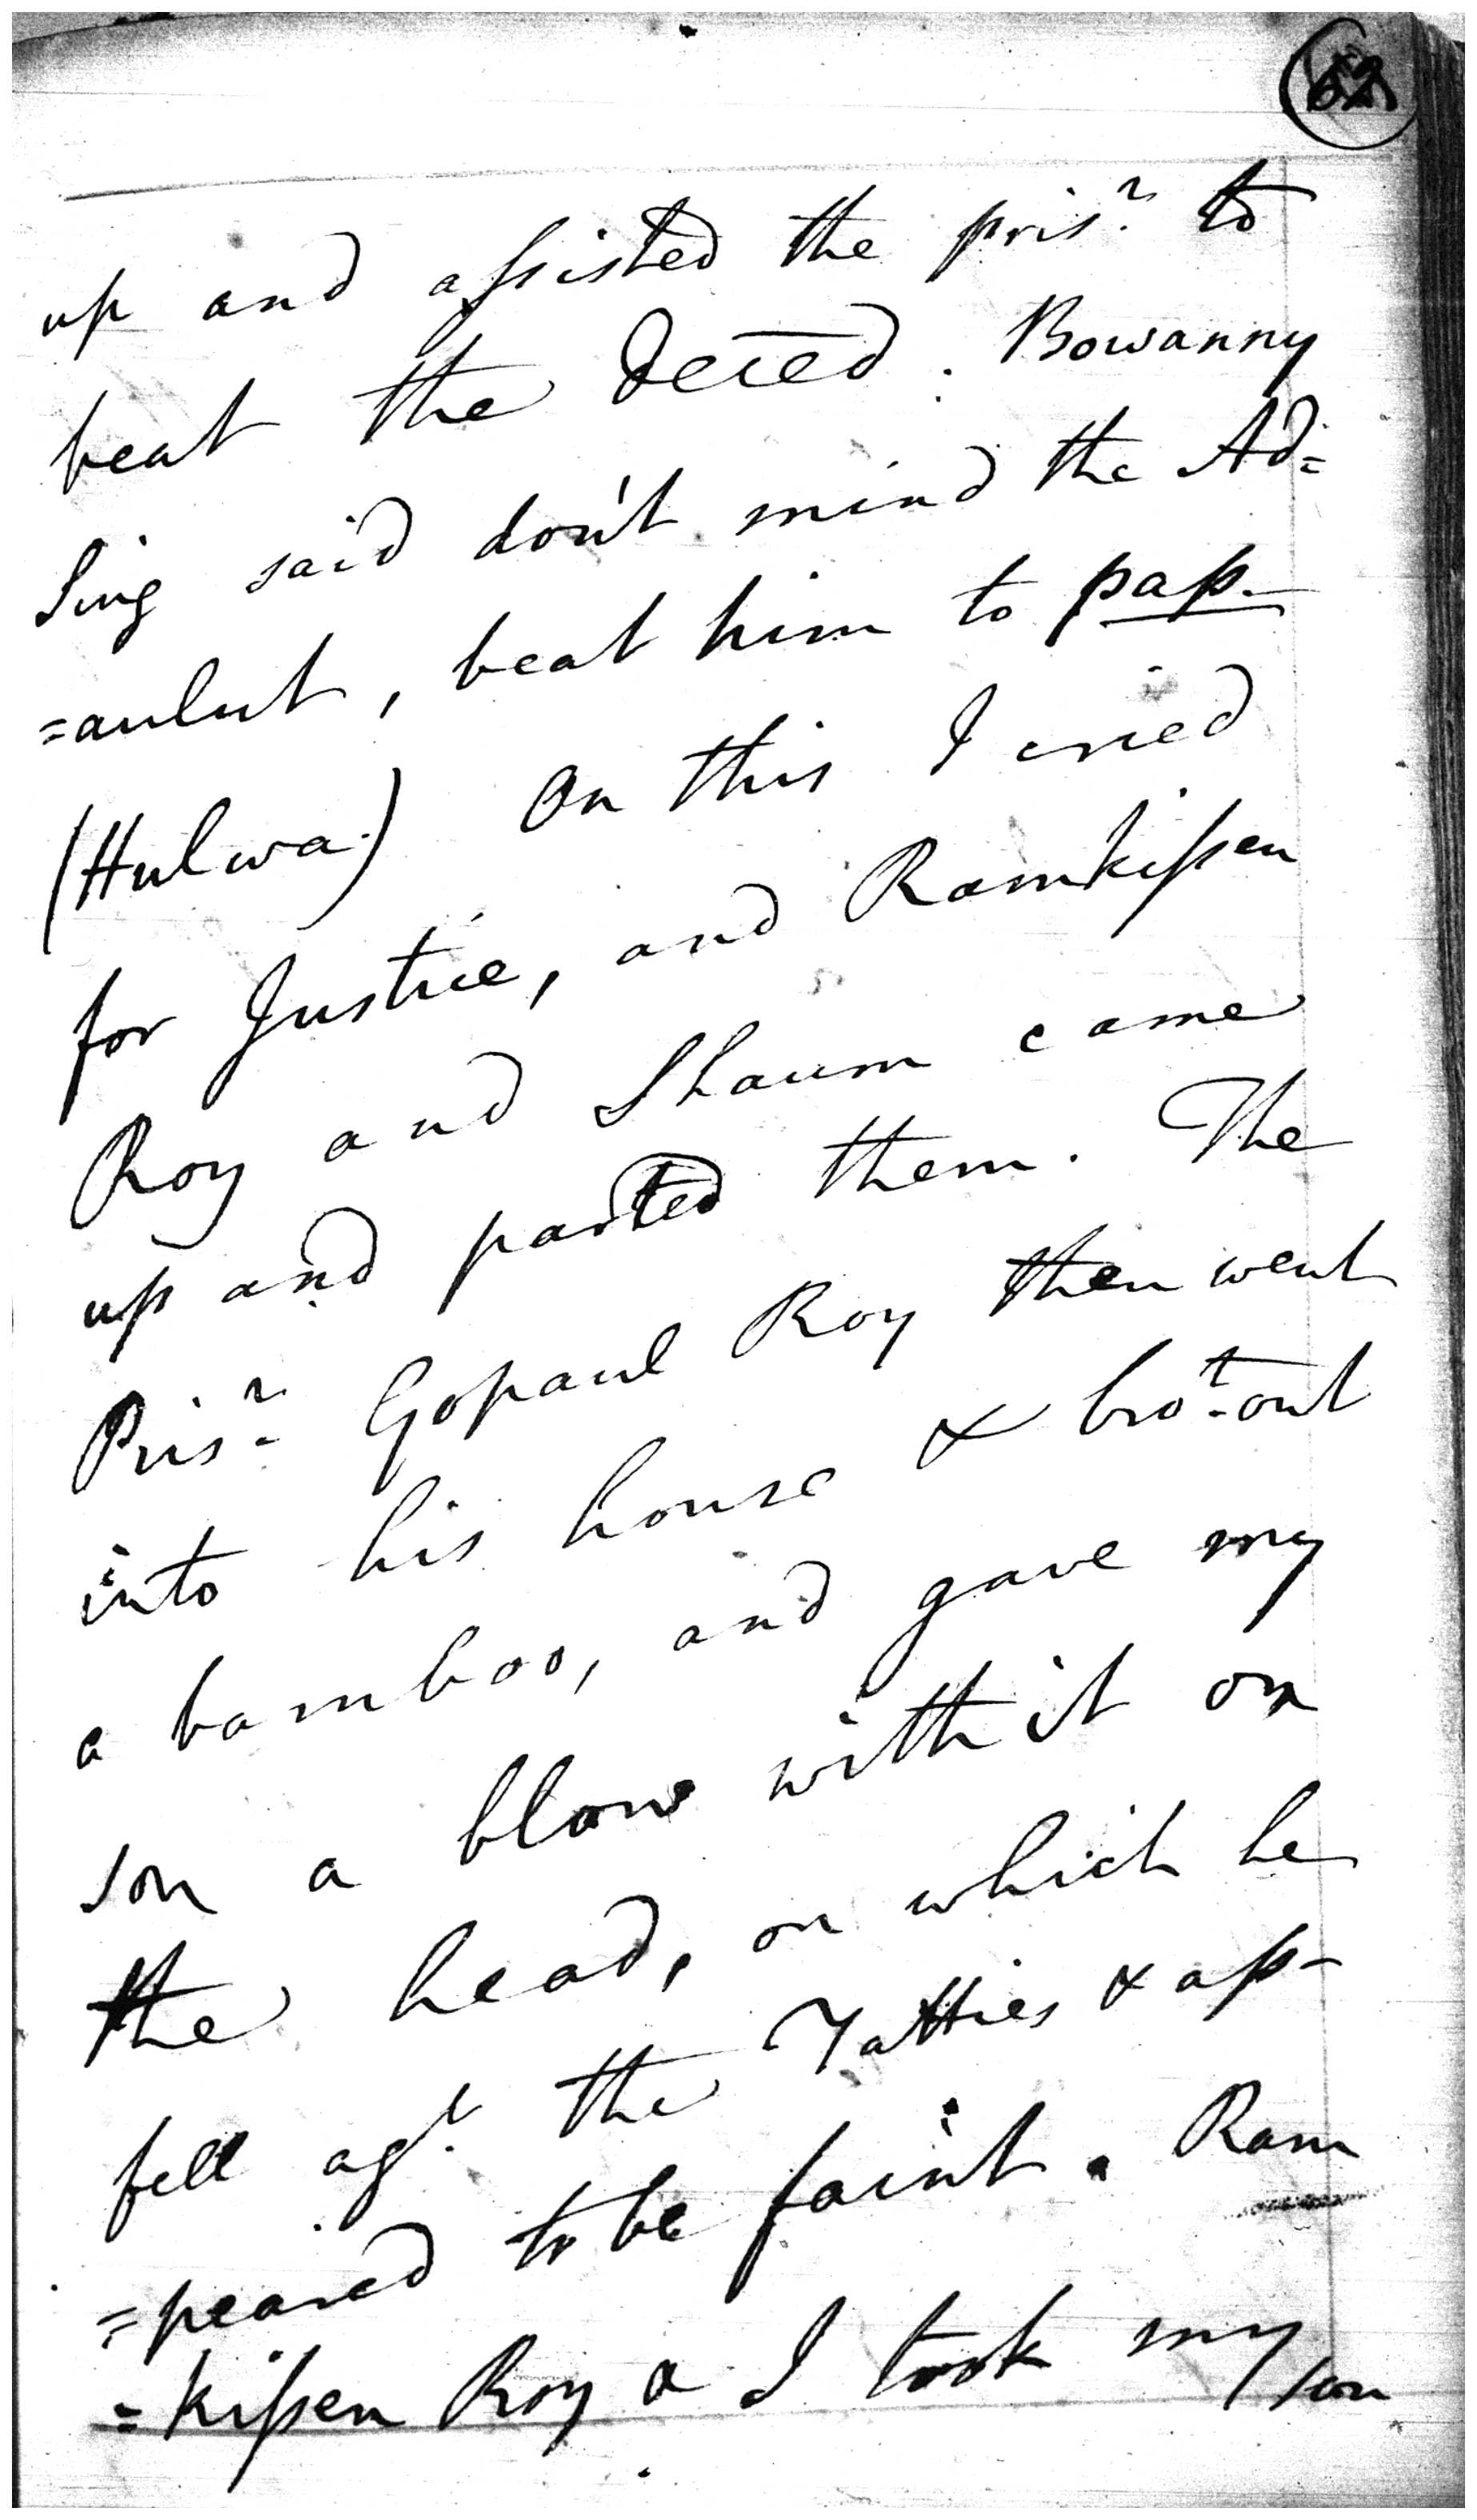 up and assisted the pris.r to
beat the Deced. Bowanny
Sing said don't mind the Ad=
=aulut, beat him to pap.
(Hulwa) On this I cried
for Justice, and Ramkissen
Roy and Shaum came
up and parted them. The
Pris.r Gopaul Roy then went
into his house & bro.t out
a bamboo, and gave my
son a blow with it on
the head, on which he
fell ag.t the Tatties & ap-
=peared to be faint. Ram
=kissen Roy & I took my son